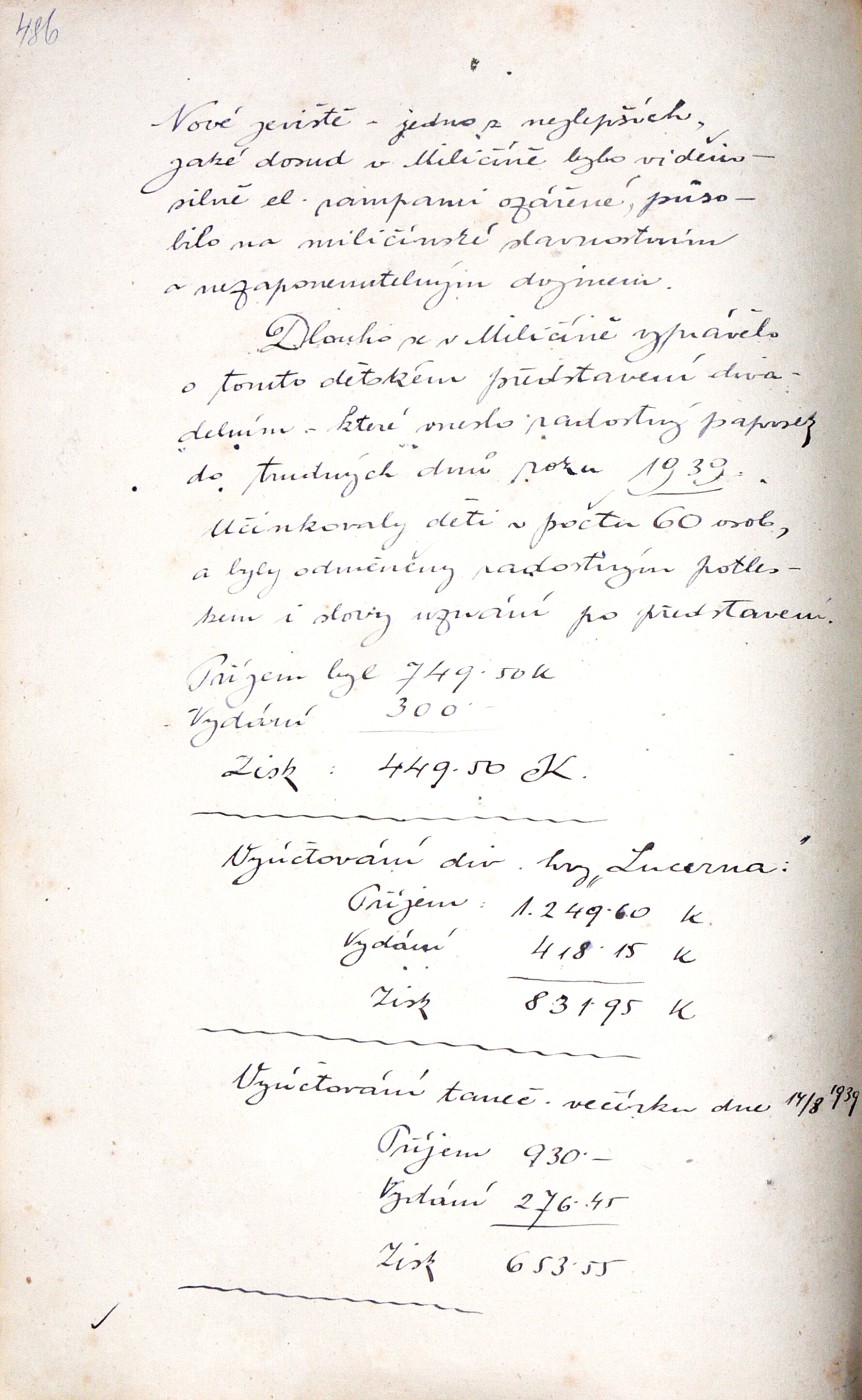 486
Nové jeviště - jedno z nejlepších,
jaké dosud v Miličíně bylo viděno -
silně el. rampami ozářené, půso-
bilo na miličínské slavnostním
a nezapomenutelným dojmem.
Dlouho se v Miličíně vyprávělo
o tomto dětském představení diva-
delním - které vneslo radostný paprsek
do trudných dnů roku 1939.
Účinkovaly děti v počtu 60 osob,
a byly odměněny radostným potles-
kem i slovy uznání po představení.
Příjem byl 749.50 K
Vydání 300.-
Zisk : 449.50 K.
Vyúčtování div. hry „Lucerna:"
Příjem: 1.249.60 K.
Vydání 418.15 K
Zisk 831.95 K
Vyúčtování taneč. večírku dne 14/8 1939
Příjem 930.-
Vydání 276.45
Zisk 653.55